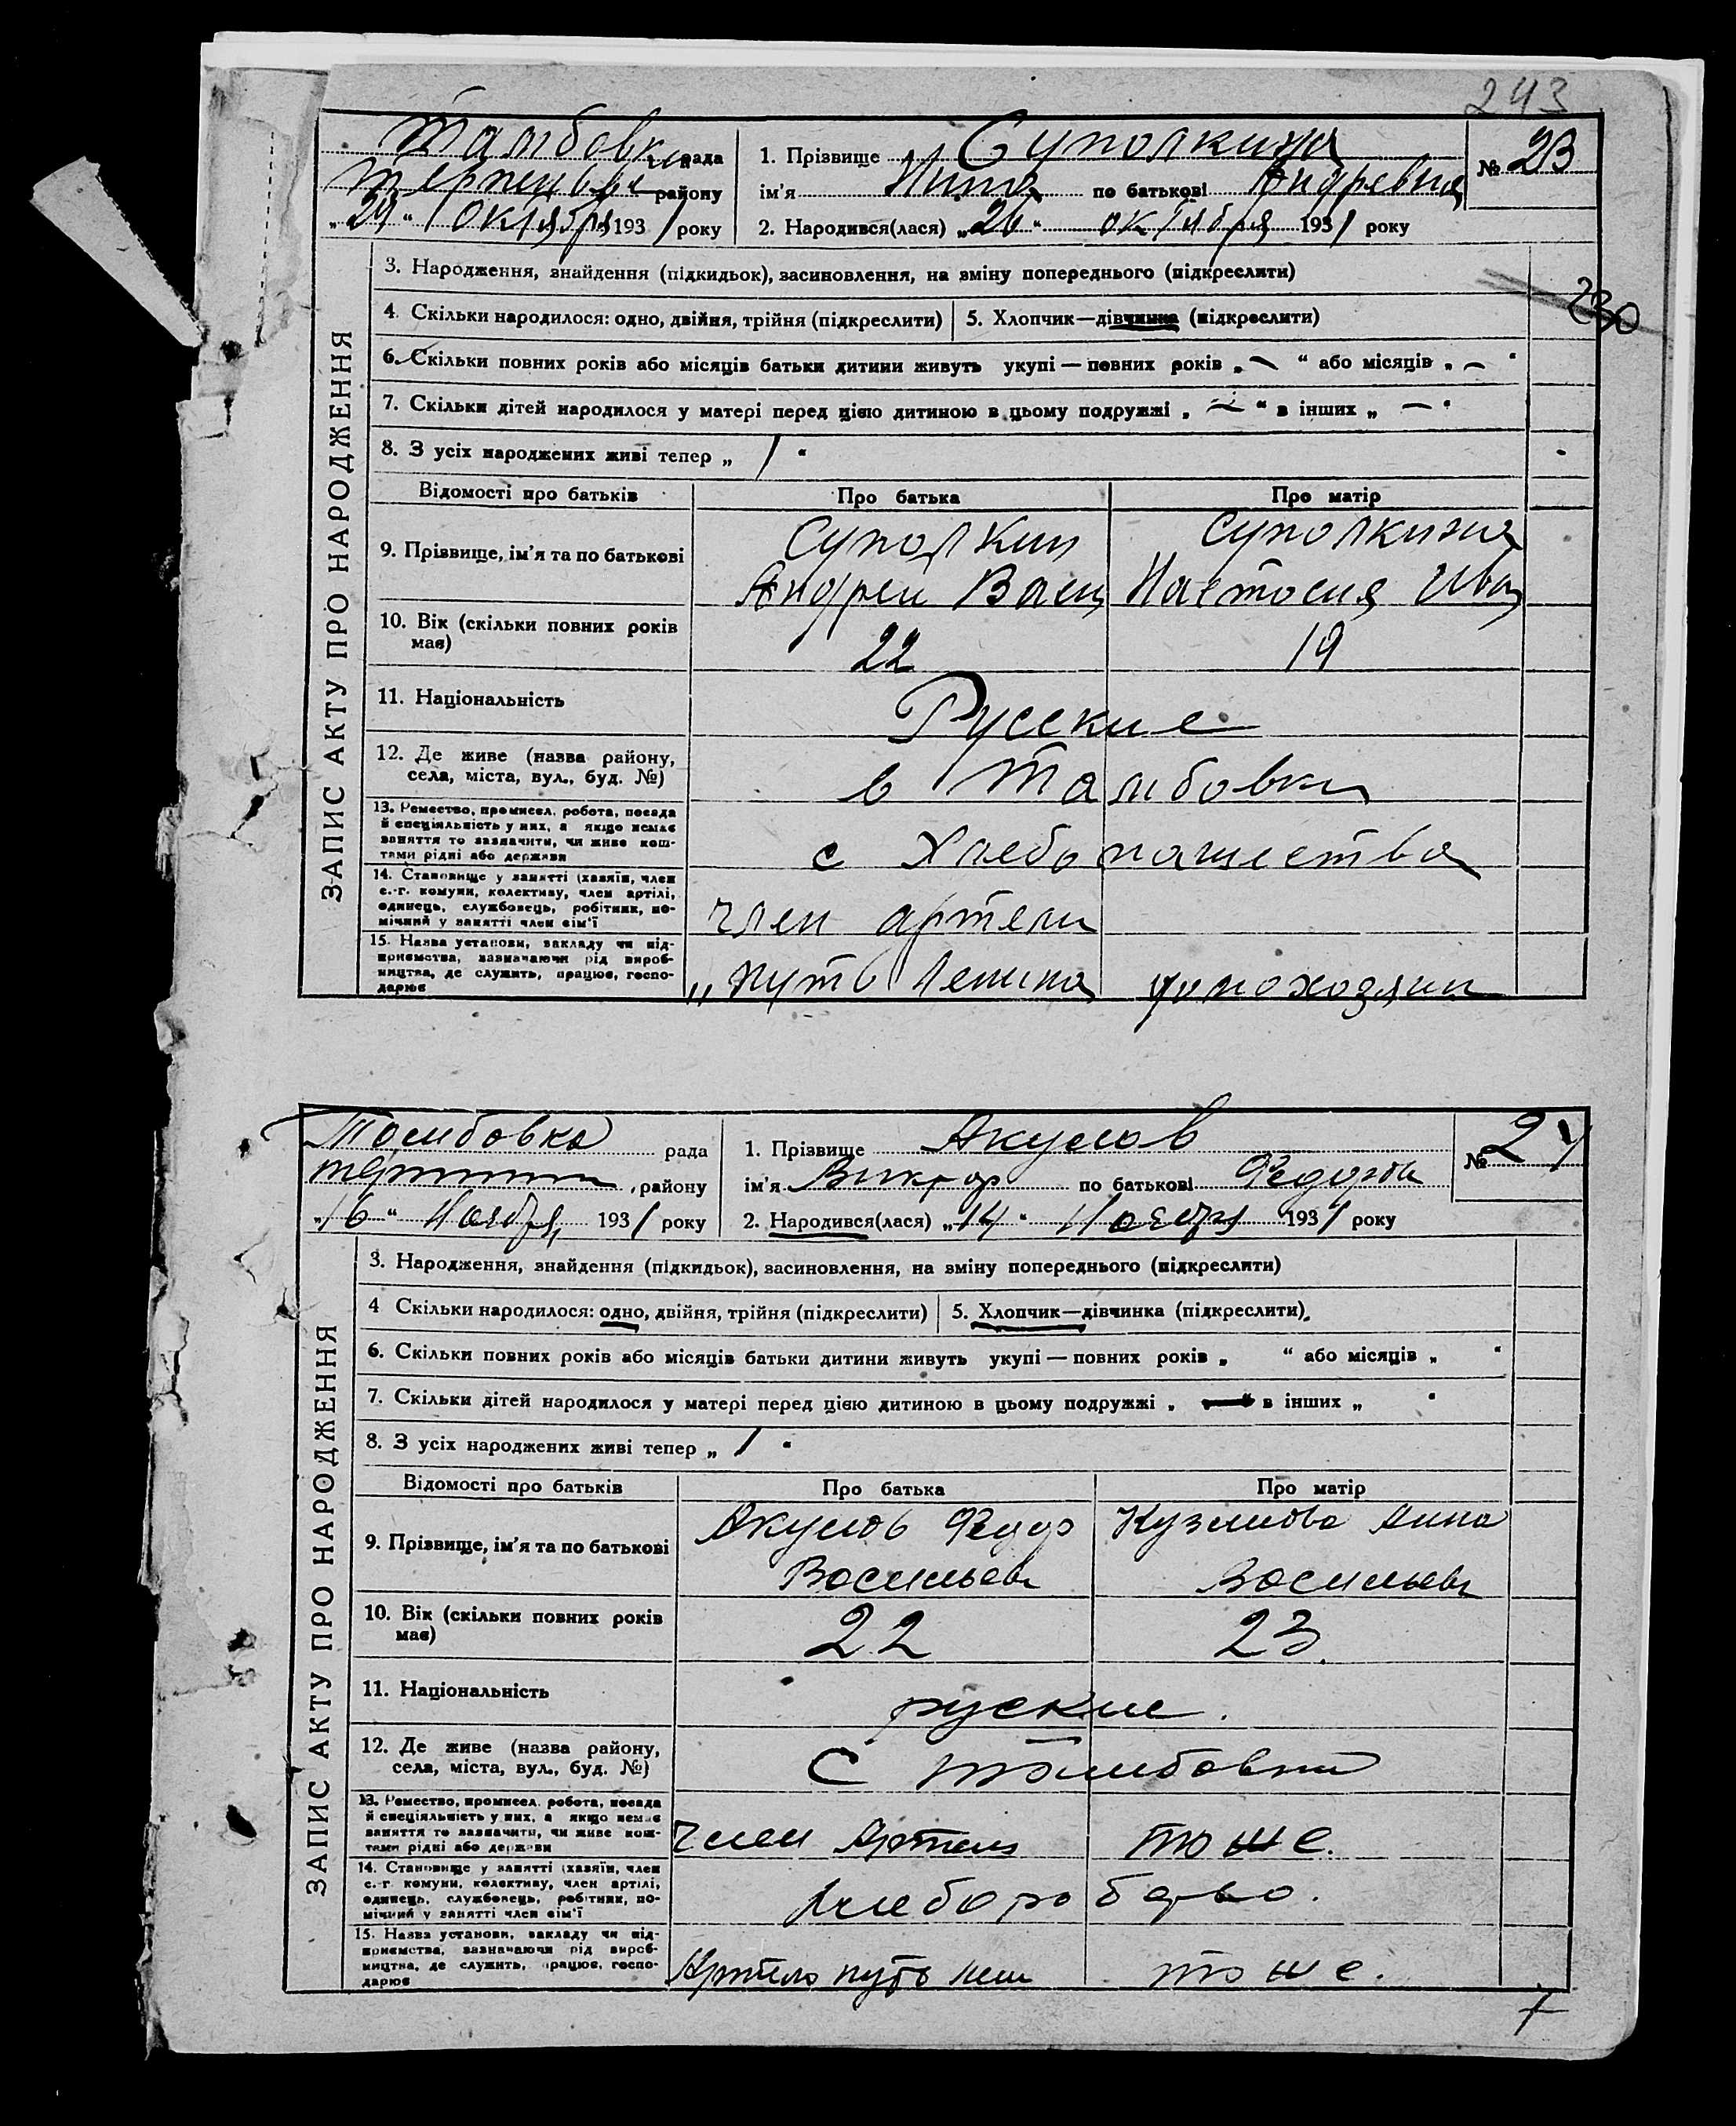 243
Тамбовки рада
района
"29" Октября 1931 року
1. Прізвище Суполкина
ім'я Нина по батькові Андревна
2. Народився(лася) "26" октября 1931 року
№ 23
ЗАПИС АКТУ ПРО НАРОДЖЕННЯ
3. Народження, знайдення (підкидьок), засиновлення, на зміну попереднього (підкреслити)
230
4. Скільки народилося: одно, двійня, трійня (підкреслити) 5. Хлопчик—дівчинка (підкреслити)
6. Скільки повних років або місяців батьки дитини живуть укупі — повних років „ — “ або місяців „ — “
7. Скільки дітей народилося у матері перед цією дитиною в цьому подружжі „ — “ в інших „ — “
8. З усіх народжених живі тепер „ 1 “
Відомості про батьків Про батька Про матір
9. Прізвище, ім'я та по батькові
Суполкин Суполкина
Андрей Васи Настосия Ива
10. Вік (скільки повних років має) 22 19
11. Національність Русские
12. Де живе (назва району, села, міста, вул., буд. №) в Тамбовки
13. Ремество, промисел, робота, посада
й спеціяльність у них, а якщо немає
заняття то зазначити, чи живе кош-
тами рідні або держави
с Хлебопашества
14. Становище у занятті (хазяїн, член
с.-г. комуни, колективу, член артілі,
одинець, службовець, робітник, по-
мічний у занятті член сім'ї
член артели
15. Назва установи, закладу чи під-
приємства, зазначаючи рід вироб-
ництва, де служить, працює, госпо-
дарює
„ путь Ленина домохозяин
Тамбовка рада
району
"16" Ноября 1931 року
1. Прізвище Акумов
ім'я Виктор по батькові Федоров
2. Народився(лася) „14“ Ноября 1931 року
№ 24
ЗАПИС АКТУ ПРО НАРОДЖЕННЯ
3. Народження, знайдення (підкидьок), засиновлення, на зміну попереднього (підкреслити)
4 Скільки народилося: одно, двійня, трійня (підкреслити) 5. Хлопчик—дівчинка (підкреслити).
6. Скільки повних років або місяців батьки дитини живуть укупі — повних років „ “ або місяців „ “
7. Скільки дітей народилося у матері перед цією дитиною в цьому подружжі „ — “ в інших „ “
8. З усіх народжених живі тепер „ 1 “
Відомості про батьків Про батька Про матір
9. Прізвище, ім'я та по батькові
Акумов Федор Кузмиова Анна
Васильев Васильев
10. Вік (скільки повних років має) 22 23.
11. Національність руские.
12. Де живе (назва району, села, міста, вул., буд. №) С Тамбовки
13. Ремество, промисел, робота, посада
й спеціяльність у них, а якщо немає
заняття то зазначити, чи живе кош-
тами рідні або держави
член Артели тоже.
14. Становище у занятті (хазяїн, член
с.-г. комуни, колективу, член артілі,
одинець, службовець, робітник, по-
мічний у занятті член сім'ї
15. Назва установи, закладу чи під-
приємства, зазначаючи рід вироб-
ництва, де служить, працює, госпо-
дарює
Артель путь лен тоже.